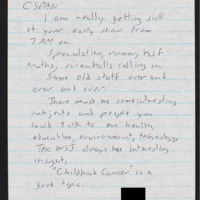 CSPAN
I am really getting sick
of your early show from
7 AM on.
Speculation, rumor, half
truths, screwballs calling in.
Same old stuff over and
over and over.
There must be some interesting
subjects and people you
could talk to on health,
education, environment, technology.
The WSJ always has interesting
insights.
"Childhood Cancer" is a
good topic.